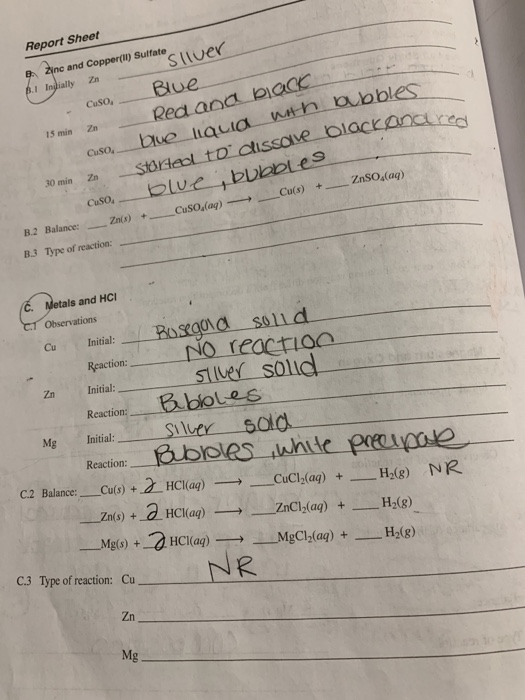 Report Sheet
B. Zinc and Copper(II) Sulfate
B.1 Initially Zn silver
CuSO₄ Blue
15 min Zn Red and black
CuSO₄ blue liquid with bubbles
30 min Zn started to dissove black and red
CuSO₄ blue, bubbles
B.2 Balance: ___ Zn(s) + ___ CuSO₄(aq) → ___ Cu(s) + ___ ZnSO₄(aq)
B.3 Type of reaction:
C. Metals and HCl
C.1 Observations
Cu Initial: Rosegold solid
Reaction: No reaction
Zn Initial: silver solid
Reaction: Bubbles
Mg Initial: silver solid
Reaction: Bubbles, white precipate
C.2 Balance: ___ Cu(s) + 2 HCl(aq) → ___ CuCl₂(aq) + ___ H₂(g) NR
___ Zn(s) + 2 HCl(aq) → ___ ZnCl₂(aq) + ___ H₂(g)
___ Mg(s) + 2 HCl(aq) → ___ MgCl₂(aq) + ___ H₂(g)
C.3 Type of reaction: Cu NR
Zn
Mg